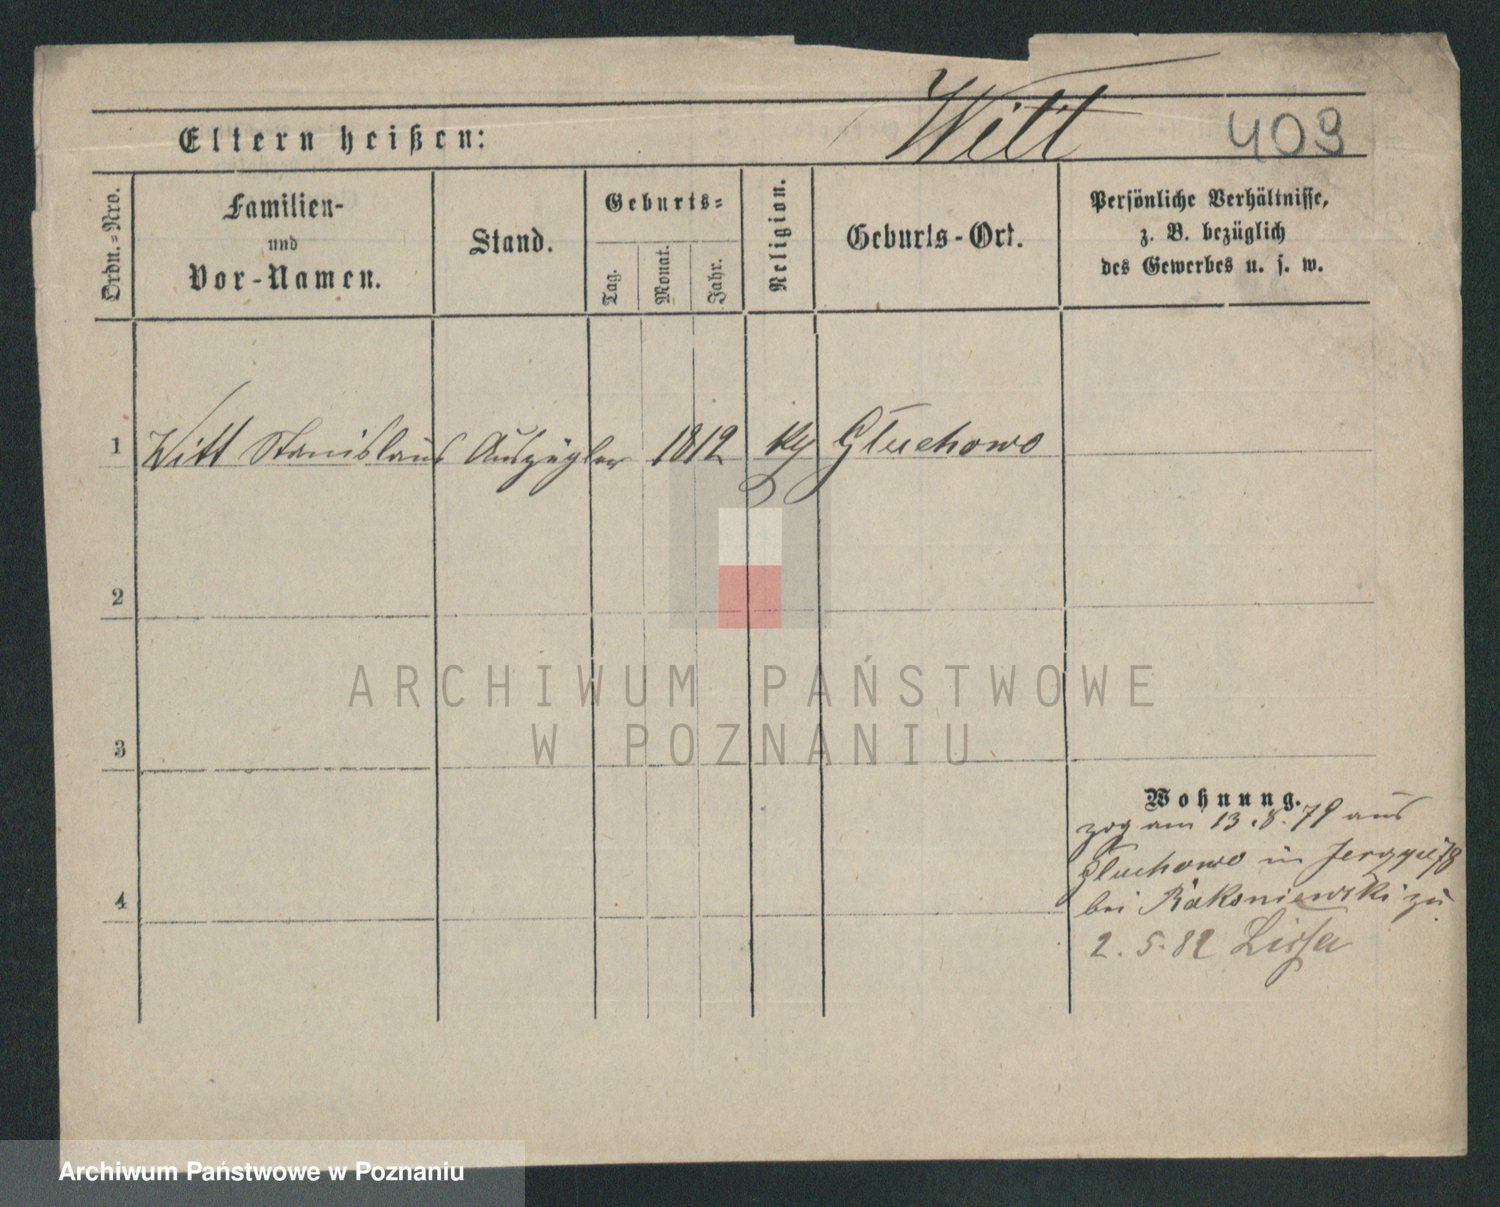 Witt 409
Eltern heißen:
Ordn.=Nro.
Familien-
und
Vor-Namen.
Stand.
Geburts=
Tag.
Monat.
Jahr.
Religion.
Geburts-Ort.
Persönliche Verhältnisse,
z. B. bezüglich
des Gewerbes u. s. w.
1 Witt Stanislaus Auszügler 1812 Gluchowo
2
3
4
Wohnung.
zog am 13.8.79 aus
Gluchowo in 78
bei zu
2.5.82 Lissa
ARCHIWUM PAŃSTWOWE
W POZNANIU
Archiwum Państwowe w Poznaniu